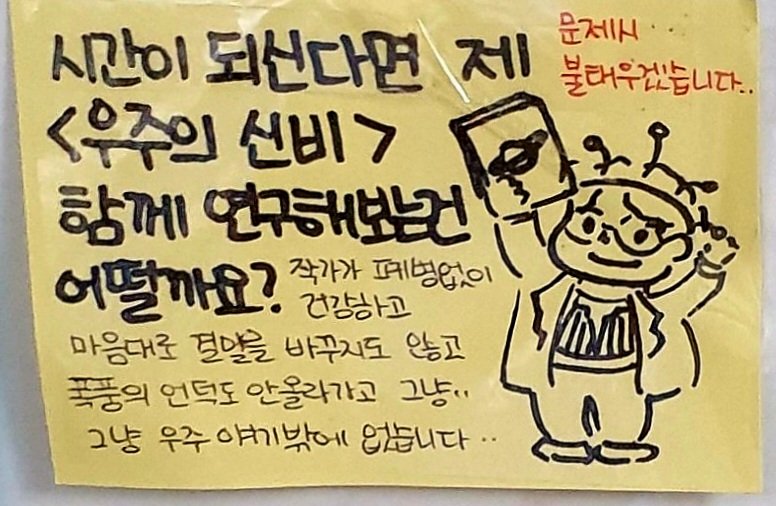 시간이 되신다면 제
문제시
불태우겠습니다..
<우주의 신비>
함께 연구해보는건
어떨까요?
작가가 폐병없이
건강하고
마음대로 결말을 바꾸지도 않고
폭풍의 언덕도 안올라가고 그냥..
그냥 우주 얘기밖에 없습니다..